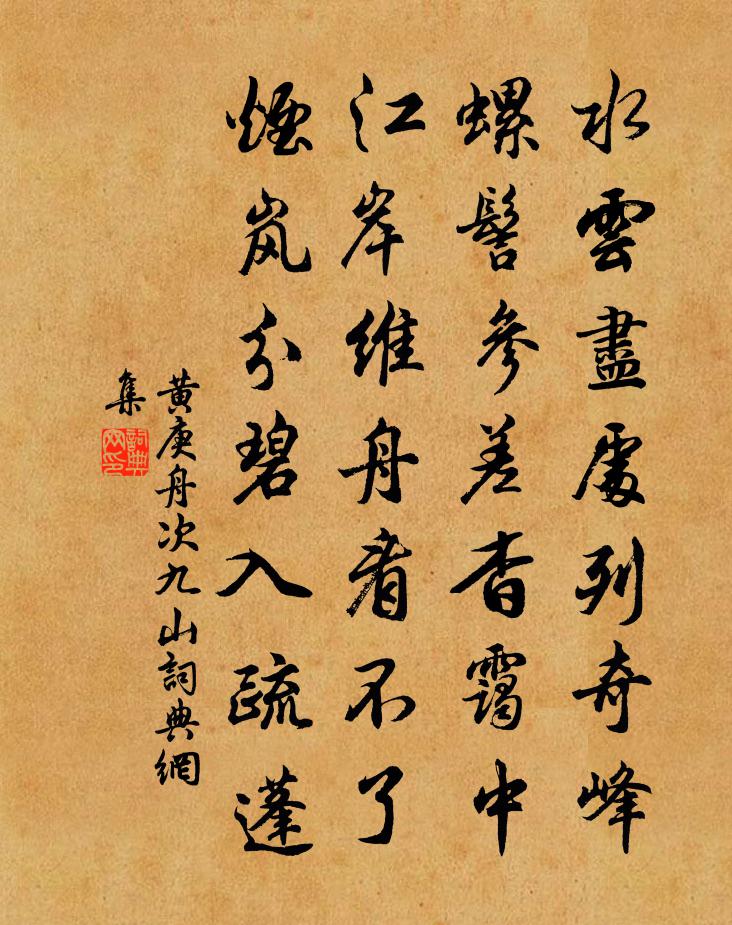 水雲盡處列奇峰
螺髻參差杳靄中
江岸維舟看不了
煙岚分碧入疏蓬
黃庚舟次九山詞典網
集
詞典网印